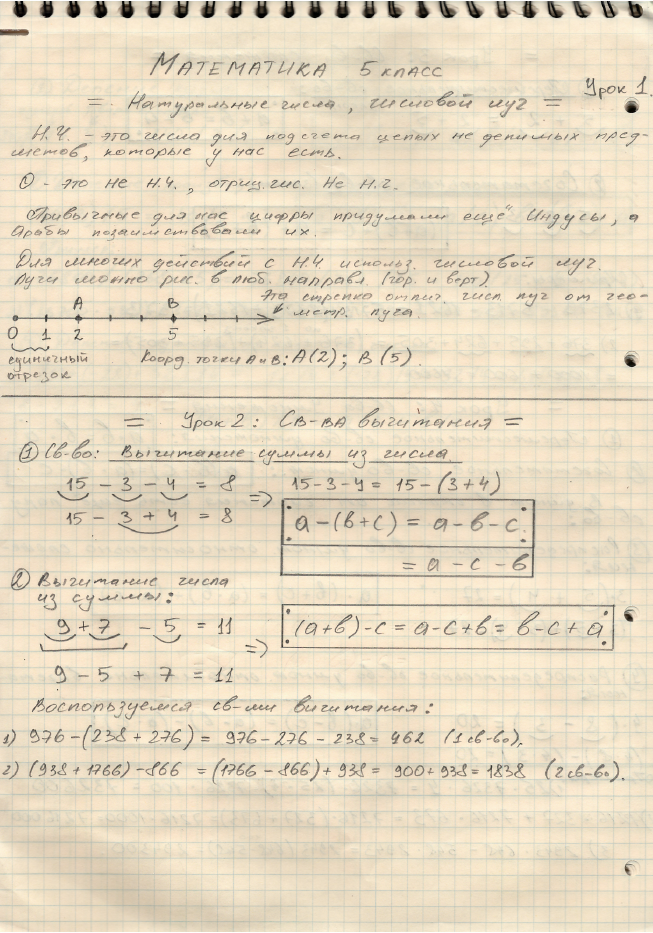 Математика 5 класс
Урок 1.
= Натуральные числа, числовой луч =
Н.Ч. - это числа для подсчета целых не делимых пред-
метов, которые у нас есть.
0 - это не Н.Ч., отриц. чис. не Н.Ч.
Привычные для нас цифры придумали ещё Индусы, а
Арабы позаимствовали их.
Для многих действий с Н.Ч. использ. числовой луч.
Лучи можно рис. в люб. направл. (гор. и верт).
Эта стрелка отлич. числ. луч от гео-
метр. луча.
A B
0 1 2 5
единичный
отрезок
Коорд. точки A и B: A(2); B(5).
= Урок 2: Св-ва вычитания =
① Св-во: Вычитание суммы из числа
15 - 3 - 4 = 8 => 15-3-4 = 15-(3+4)
15 - 3 + 4 = 8
a-(b+c) = a-b-c.
= a-c-b
② Вычитание числа
из суммы:
9+7 - 5 = 11 => (a+b)-c = a-c+b = b-c+a
9 - 5 + 7 = 11
Воспользуемся св-ми вичитания:
1) 976-(238+276) = 976-276-238 = 462 (1 св-во),
2) (938+1766)-866 = (1766-866)+938 = 900+938 = 1838 (2 св-во).